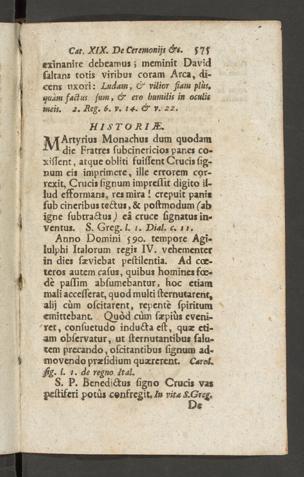 Cat. XIX. De Ceremonijs &c. 575
exinanire debeamus; meminit David
saltans totis viribus coram Arca, di-
cens uxori: Ludam, & vilior fiam plùs,
quàm factus sum, & ero humilis in oculis
meis. 2. Reg. 6. v. 14. & v. 22.
HISTORIÆ.
MArtyrius Monachus dum quodam
die Fratres subcinericios panes co-
xissent, atque obliti fuissent Crucis sig-
num eis imprimere, ille errorem cor-
rexit, Crucis signum impressit digito il-
lud efformans, res mira! crepuit panis
sub cineribus tectus, & postmodum (ab
igne subtractus) eâ cruce signatus in-
ventus. S. Greg. l. 1. Dial. c. 11.
Anno Domini 590. tempore Agi-
lulphi Italorum regis IV. vehementer
in dies sæviebat pestilentia. Ad cœ-
teros autem casus, quibus homines fœ-
dè passim absumebantur, hoc etiam
mali accesserat, quod multi sternutarent,
alij cùm oscitarent, repentè spiritum
emittebant. Quòd cùm sæpiùs eveni-
ret, consuetudo inducta est, quæ eti-
am observatur, ut sternutantibus salu-
tem precando, oscitantibus signum ad-
movendo præsidium quærerent. Carol.
sig. l. 1. de regno Ital.
S. P. Benedictus signo Crucis vas
pestiferi potûs confregit. In vita S. Greg.
De